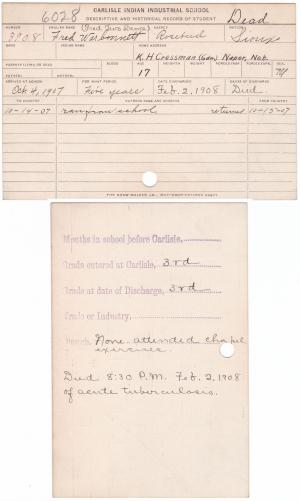 6028 CARLISLE INDIAN INDUSTRIAL SCHOOL Dead
DESCRIPTIVE AND HISTORICAL RECORD OF STUDENT
NUMBER ENGLISH NAME AGENCY NATION
3908 Fred Warbonnett (Fred Two Rosebud Sioux
BAND INDIAN NAME HOME ADDRESS
K.H. Cressman (Gdn) Naper, Neb.
PARENTS LIVING OR DEAD BLOOD AGE HEIGHT WEIGHT FORCED INSP. FORCED EXPR. SEX
FATHER, MOTHER, 17 M
ARRIVED AT SCHOOL FOR WHAT PERIOD DATE OF DISCHARGE CAUSE OF DISCHARGE
Oct 4, 1907 Five years Feb. 2, 1908 Died
TO COUNTRY PATRONS NAME AND ADDRESS FROM COUNTRY
10-14-07 ran from school returned 10-15-07
Months in school before Carlisle,
Grade entered at Carlisle, 3rd
Grade at date of Discharge, 3rd
Trade or Industry,
Church, None. attended chapel
exercises.
Died 8:30 P.M. Feb. 2, 1908
of acute tuberculosis.